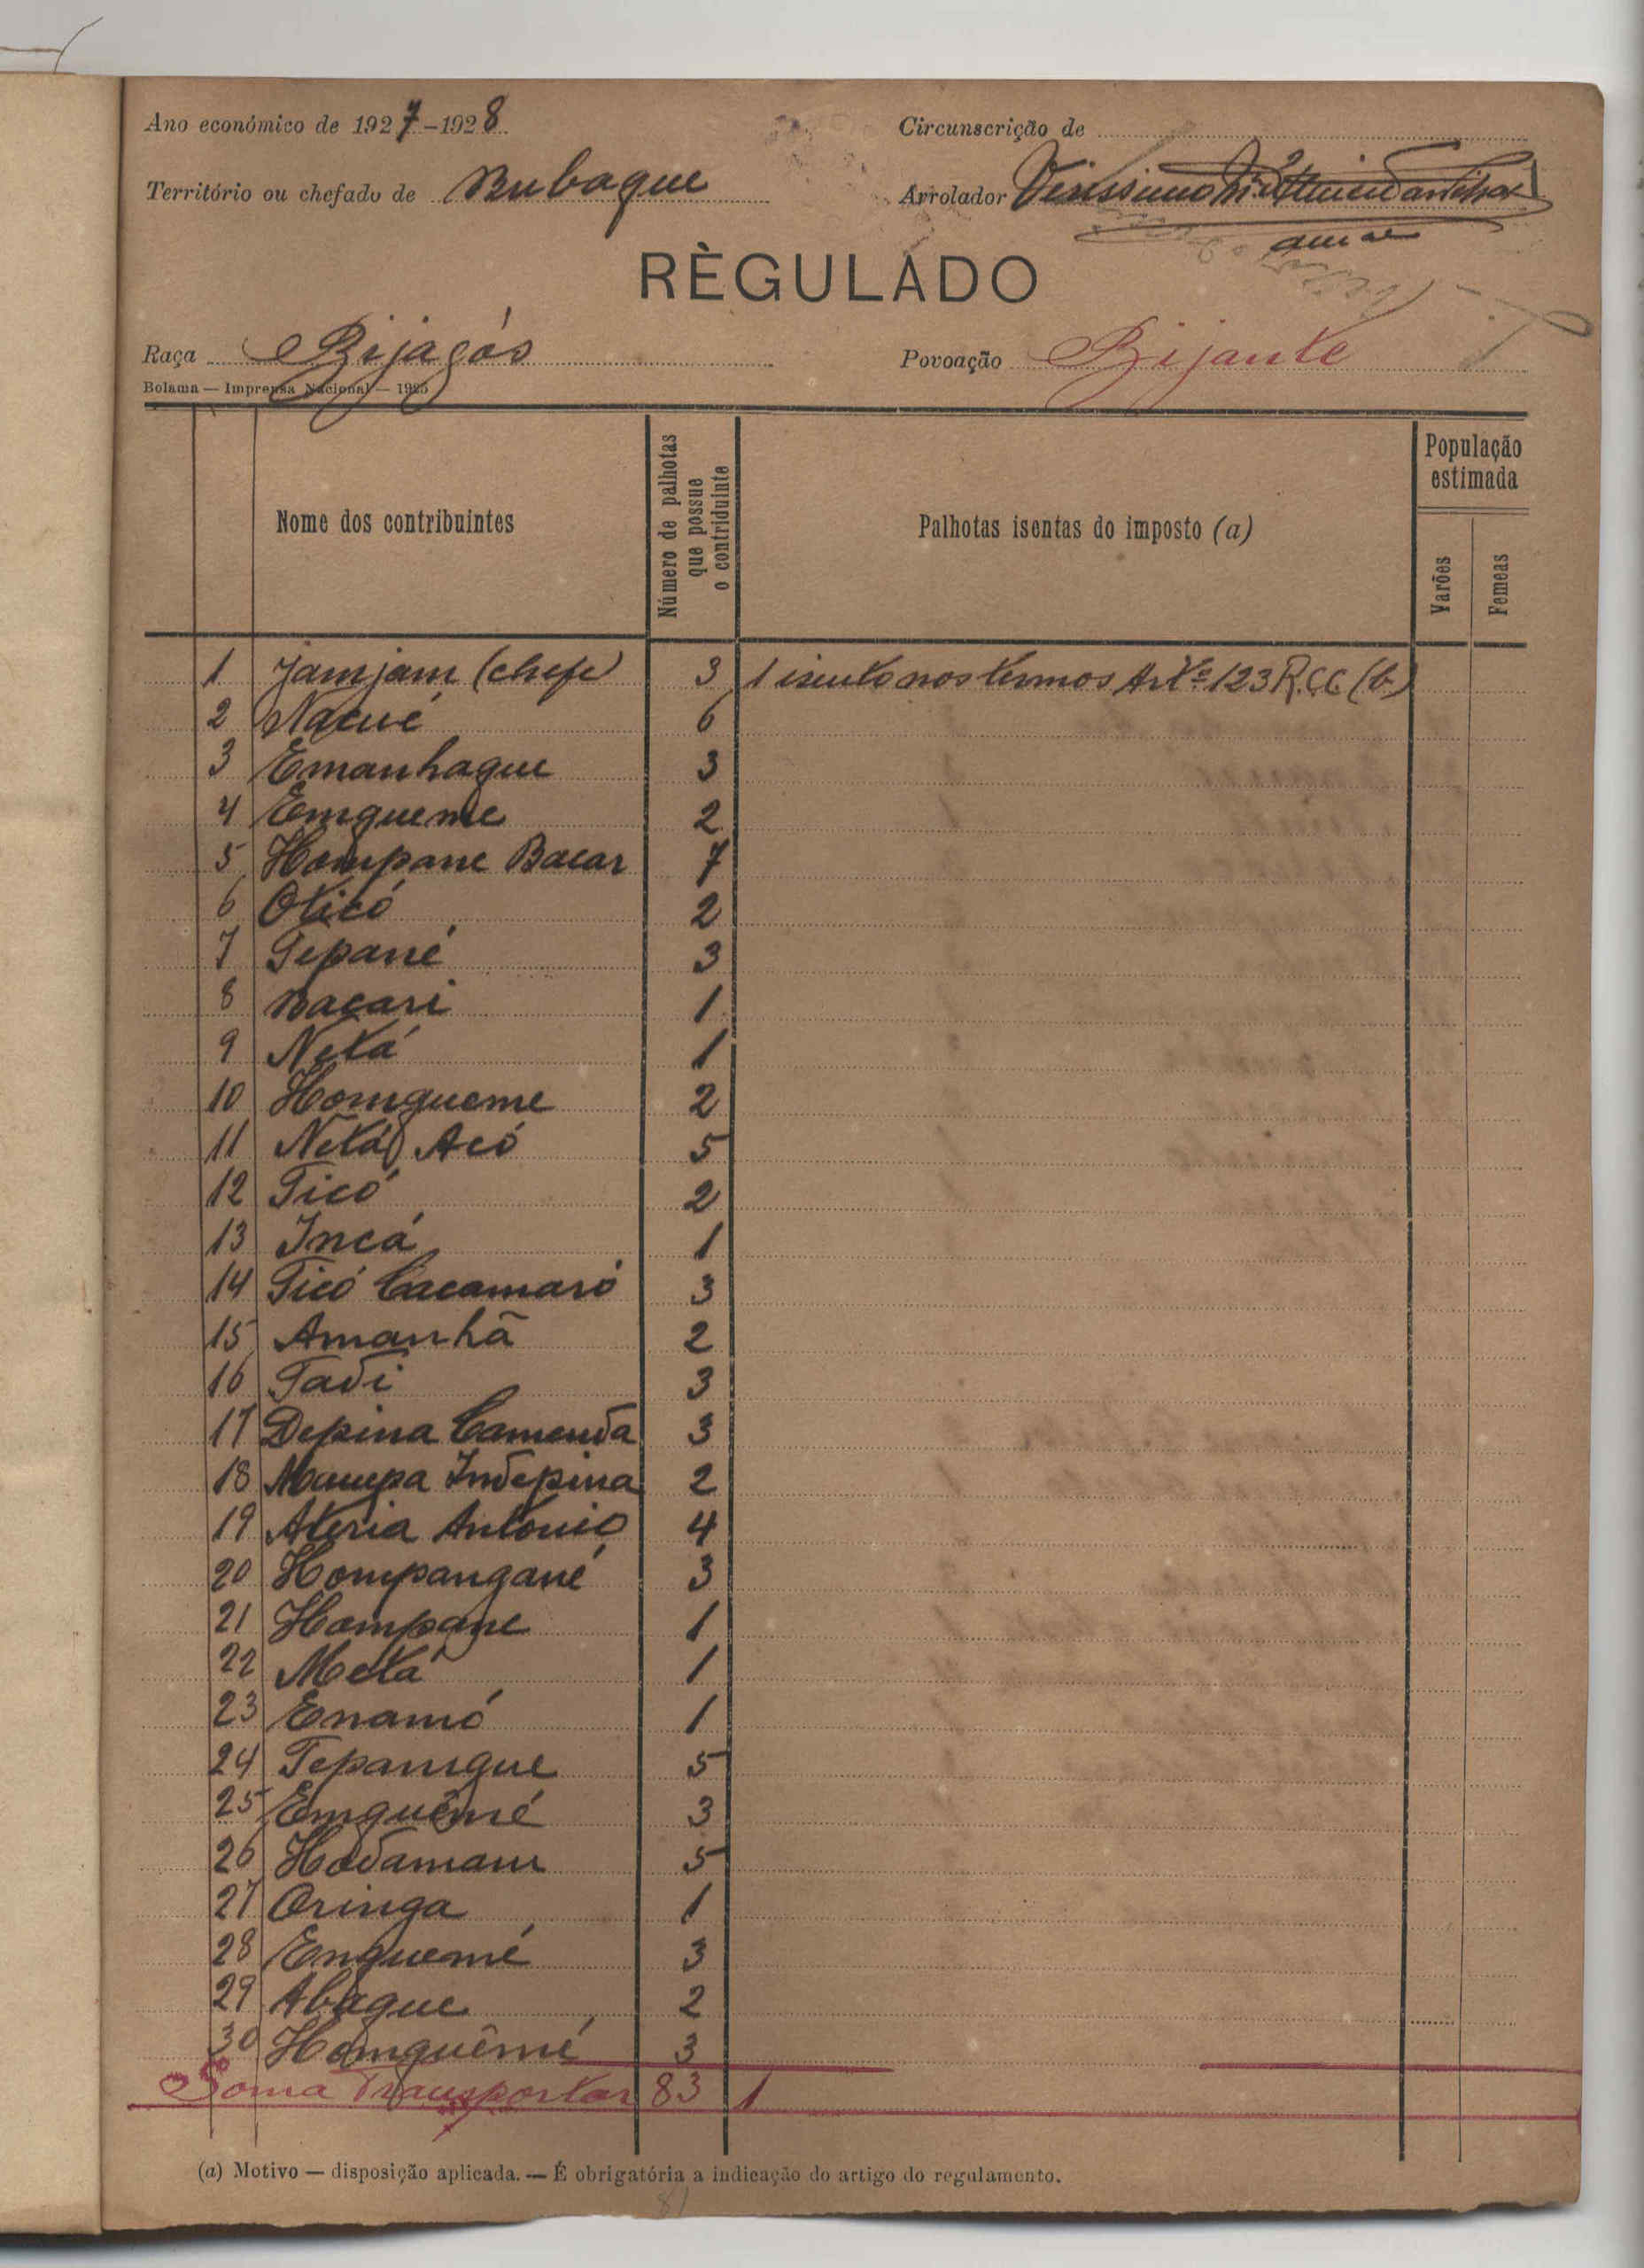 Ano económico de 1927-1928
Circunscrição de
Território ou chefado de Bubaque
Arrolador Verissimo
RÈGULADO
Raça Bijagós
Povoação Bijante
Bolama — Imprensa Nacional — 1925
Nome dos contribuintes
Número de palhotas que possue o contriduinte
Palhotas isentas do imposto (a)
População estimada
Varões
Femeas
1 Jamjam (chefe) 3 1 isento nos termos Artº 123 R.C.C. (b)
2 Nacué 6
3 Emanhaque 3
4 Emgueme 2
5 Hompane Bacar 7
6 Oticó 2
7 Tepané 3
8 Bacari 1
9 Netá 1
10 Homgueme 2
11 Netá Acó 5
12 Ticó 2
13 Incá 1
14 Ticó Cacamaró 3
15 Amanhã 2
16 Tadi 3
17 Depina Camenda 3
18 Maupa Indepina 2
19 Ateria Antonio 4
20 Hompangané 3
21 Hompane 1
22 Metá 1
23 Enamó 1
24 Tepamgue 5
25 Emguêmé 3
26 Hodamam 5
27 Oringa 1
28 Enguemé 3
29 Abague 2
30 Homguêmé 3
Soma Transportar 83 1
(a) Motivo — disposição aplicada. — É obrigatória a indicação do artigo do regulamento.